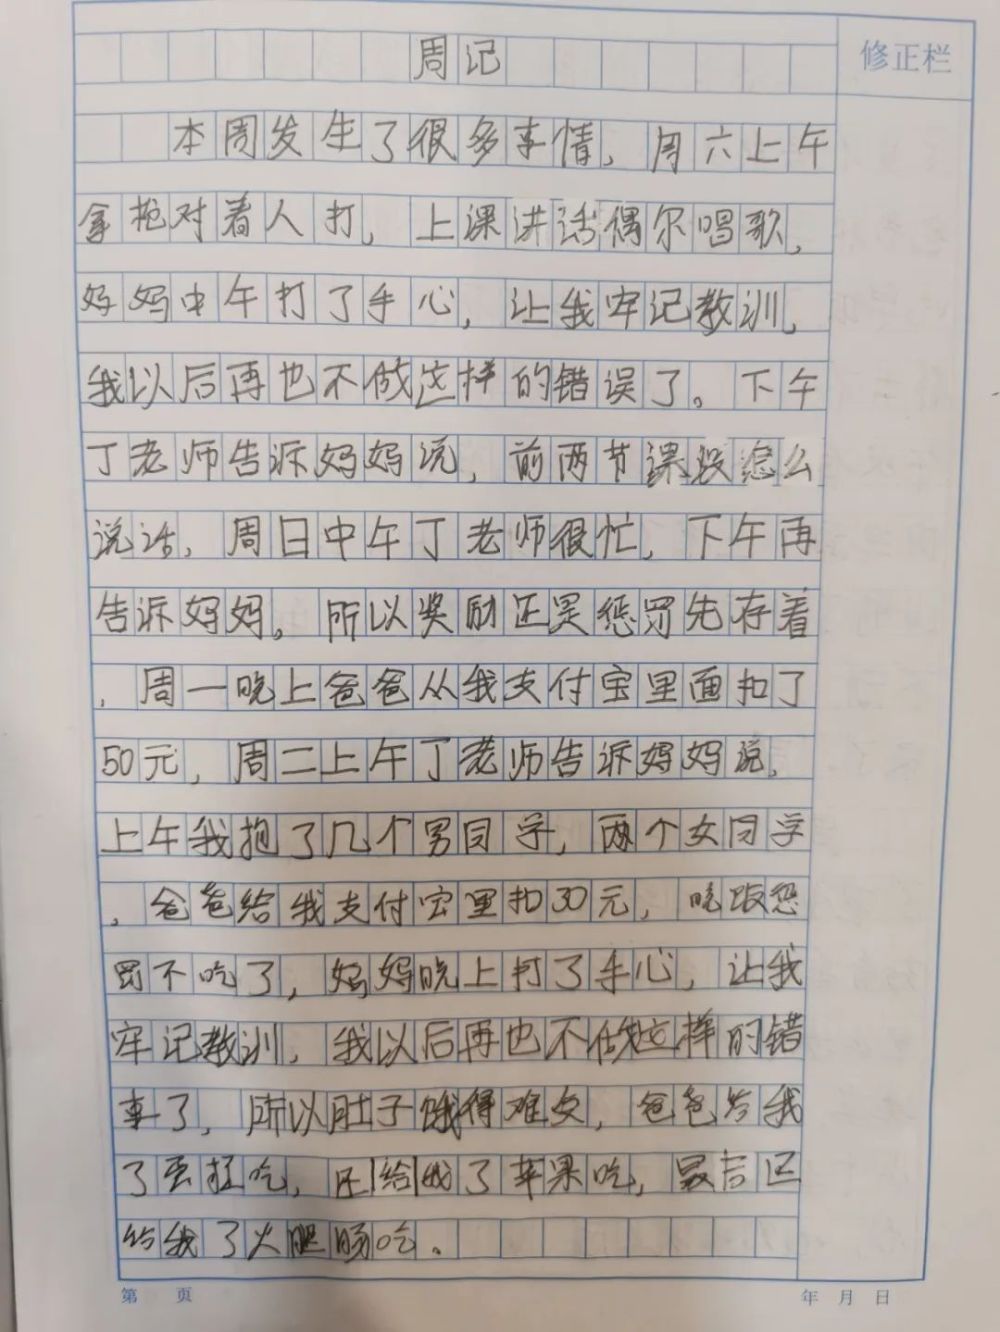 周记
修正栏
本周发生了很多事情，周六上午
拿枪对着人打，上课讲话偶尔唱歌，
妈妈中午打了手心，让我牢记教训，
我以后再也不做这样的错误了。下午
丁老师告诉妈妈说，前两节课没怎么
说话，周日中午丁老师很忙，下午再
告诉妈妈。所以奖励还是惩罚先存着
，周一晚上爸爸从我支付宝里面扣了
50元，周二上午丁老师告诉妈妈说，
上午我抱了几个男同学，两个女同学
，爸爸给我支付宝里扣30元，晚饭惩
罚不吃了，妈妈晚上打了手心，让我
牢记教训，我以后再也不做这样的错
事了，所以肚子饿得难受，爸爸给我
了蛋挞吃，还给我了苹果吃，最后还
给我了火腿肠吃。
第 页
年 月 日